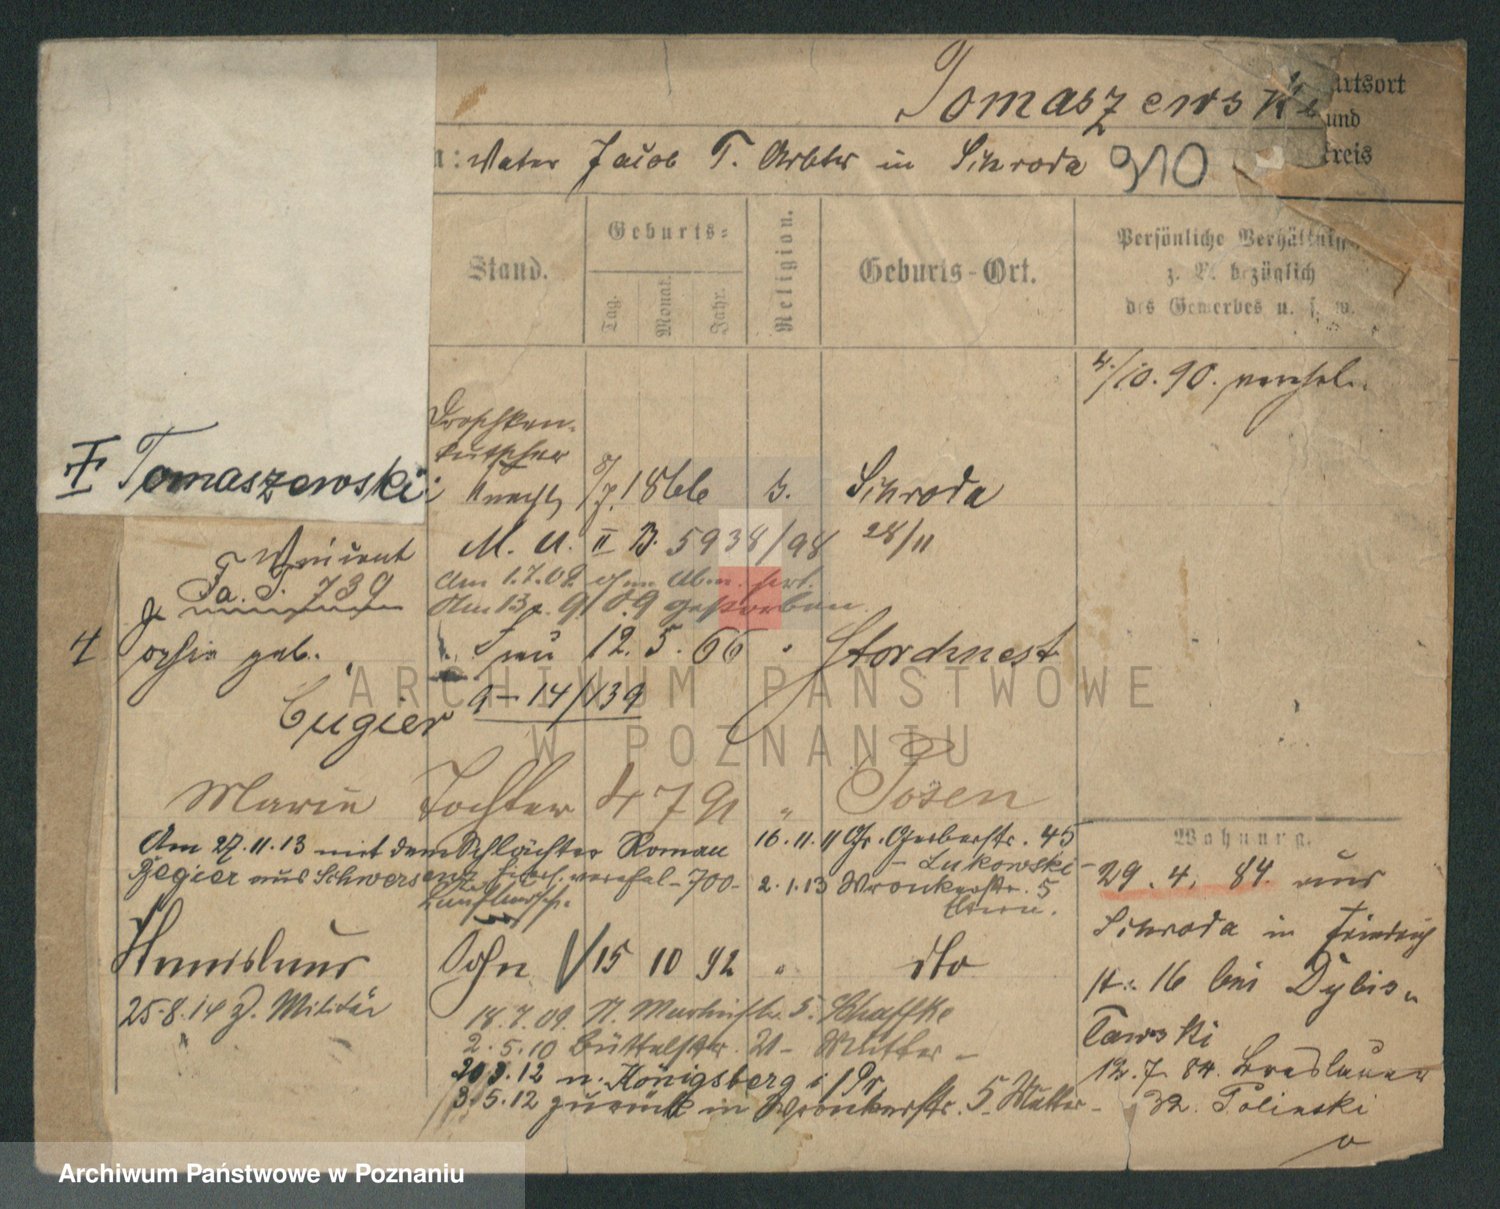 Tomaszewski
Vater Jacob T. Arbtr in Schroda 910
rtsort
und
Kreis
Stand.
Geburts=
Tag.
Monat.
Jahr.
Religion.
Geburts-Ort.
Persönliche Verhältnisse
z. B. bezüglich
des Gewerbes u. s. w.
4/10. 90. verehel.
Tomaszewski
Droschken-
kutscher
Knecht 8/7. 1866 k. Schroda
Vincent
M. U. II B. 5938/98 28/11
Fa. S. 739
Am 1.7.08
Am 13. 9. 09 gestorben.
4
Sophie geb. Frau 12. 5. 66 " Storchnest
Cugier 9-14/139
Marie Tochter 4 7 91 " Posen
Am 27.11.13 mit dem Schlächter Roman
Zegier aus Schwersenz verehel-700-
Laufbursch.
16.11.11 Gr. Gerberstr. 45
- Lukowski -
2.1.13 Wronkerstr. 5
Eltern.
Stanislaus Sohn 15 10 92 " dto
25.8.14 z. Militär
18.7.09. N. Marktstr. 5. Schaffke
2.5.10 Büttelstr. - Mutter -
20.3.12 n. Königsberg i/Pr.
3.5.12 zurück in Wronkerstr. 5. Mutter -
Wohnung.
29. 4. 84. aus
Schroda in Friedrich
st. 16 bei Dybis-
Tawski
12. 7. 84. Breslauer
32. Polinski
ARCHIWUM PAŃSTWOWE
W POZNANIU
Archiwum Państwowe w Poznaniu